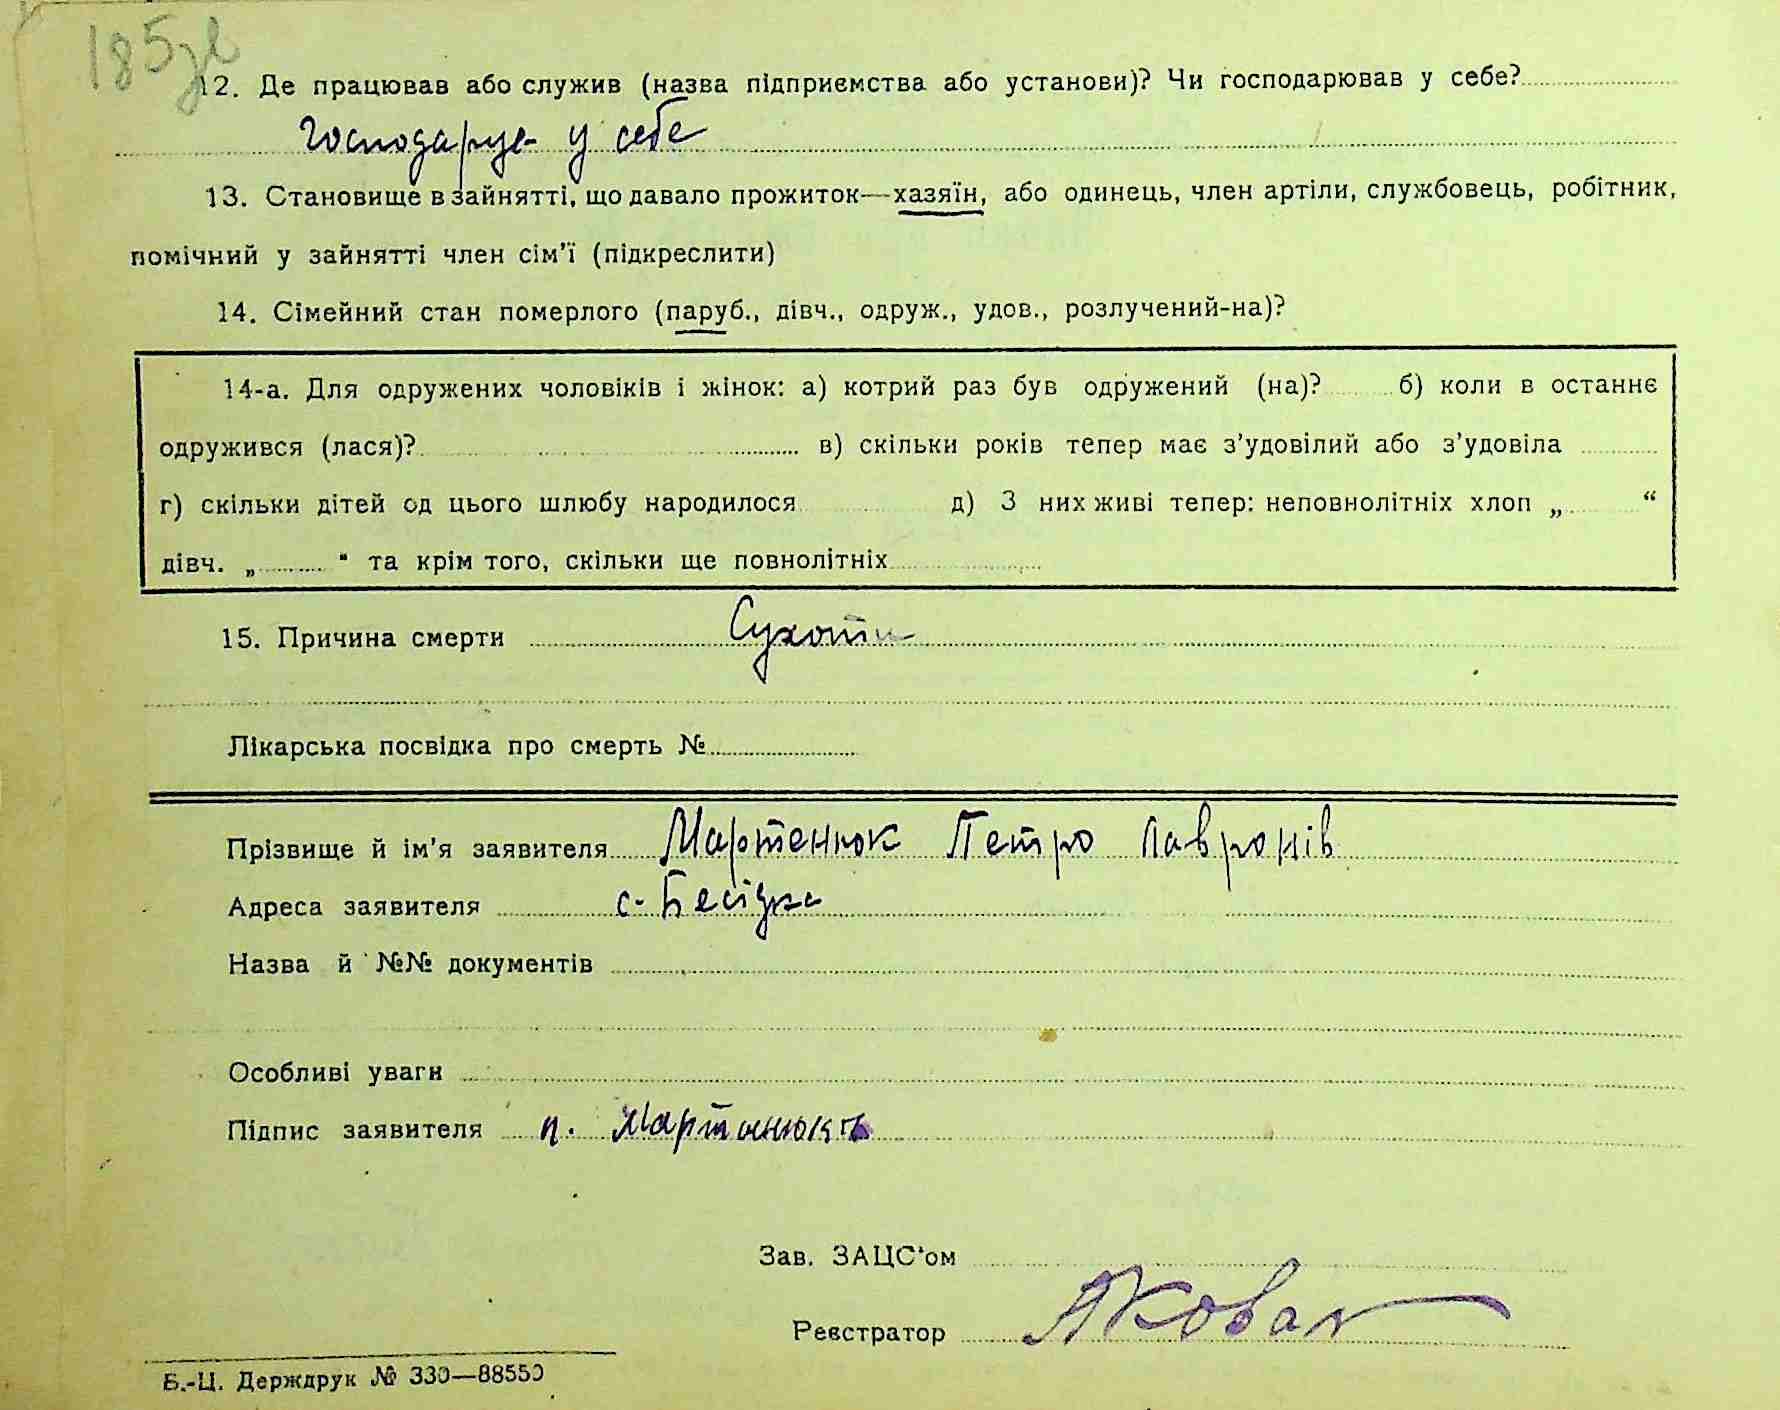 185зв
12. Де працював або служив (назва підприємства або установи)? Чи господарював у себе?
Господарує у себе
13. Становище в зайнятті, що давало прожиток—хазяїн, або одинець, член артіли, службовець, робітник,
помічний у зайнятті член сім’ї (підкреслити)
14. Сімейний стан померлого (паруб., дівч., одруж., удов., розлучений-на)?
14-а. Для одружених чоловіків і жінок: а) котрий раз був одружений (на)? б) коли в останнє
одружився (лася)? в) скільки років тепер має з’удовілий або з’удовіла
г) скільки дітей од цього шлюбу народилося д) З них живі тепер: неповнолітніх хлоп „ “
дівч. „ “ та крім того, скільки ще повнолітніх
15. Причина смерти Сухоти
Лікарська посвідка про смерть №
Прізвище й ім’я заявителя Мартенюк Петро Лавронів
Адреса заявителя с. Бесідка
Назва й №№ документів
Особливі уваги
Підпис заявителя п. Мартенюк
Зав. ЗАЦС‘ом
Реєстратор
Б.-Ц. Держдрук № 330—88550